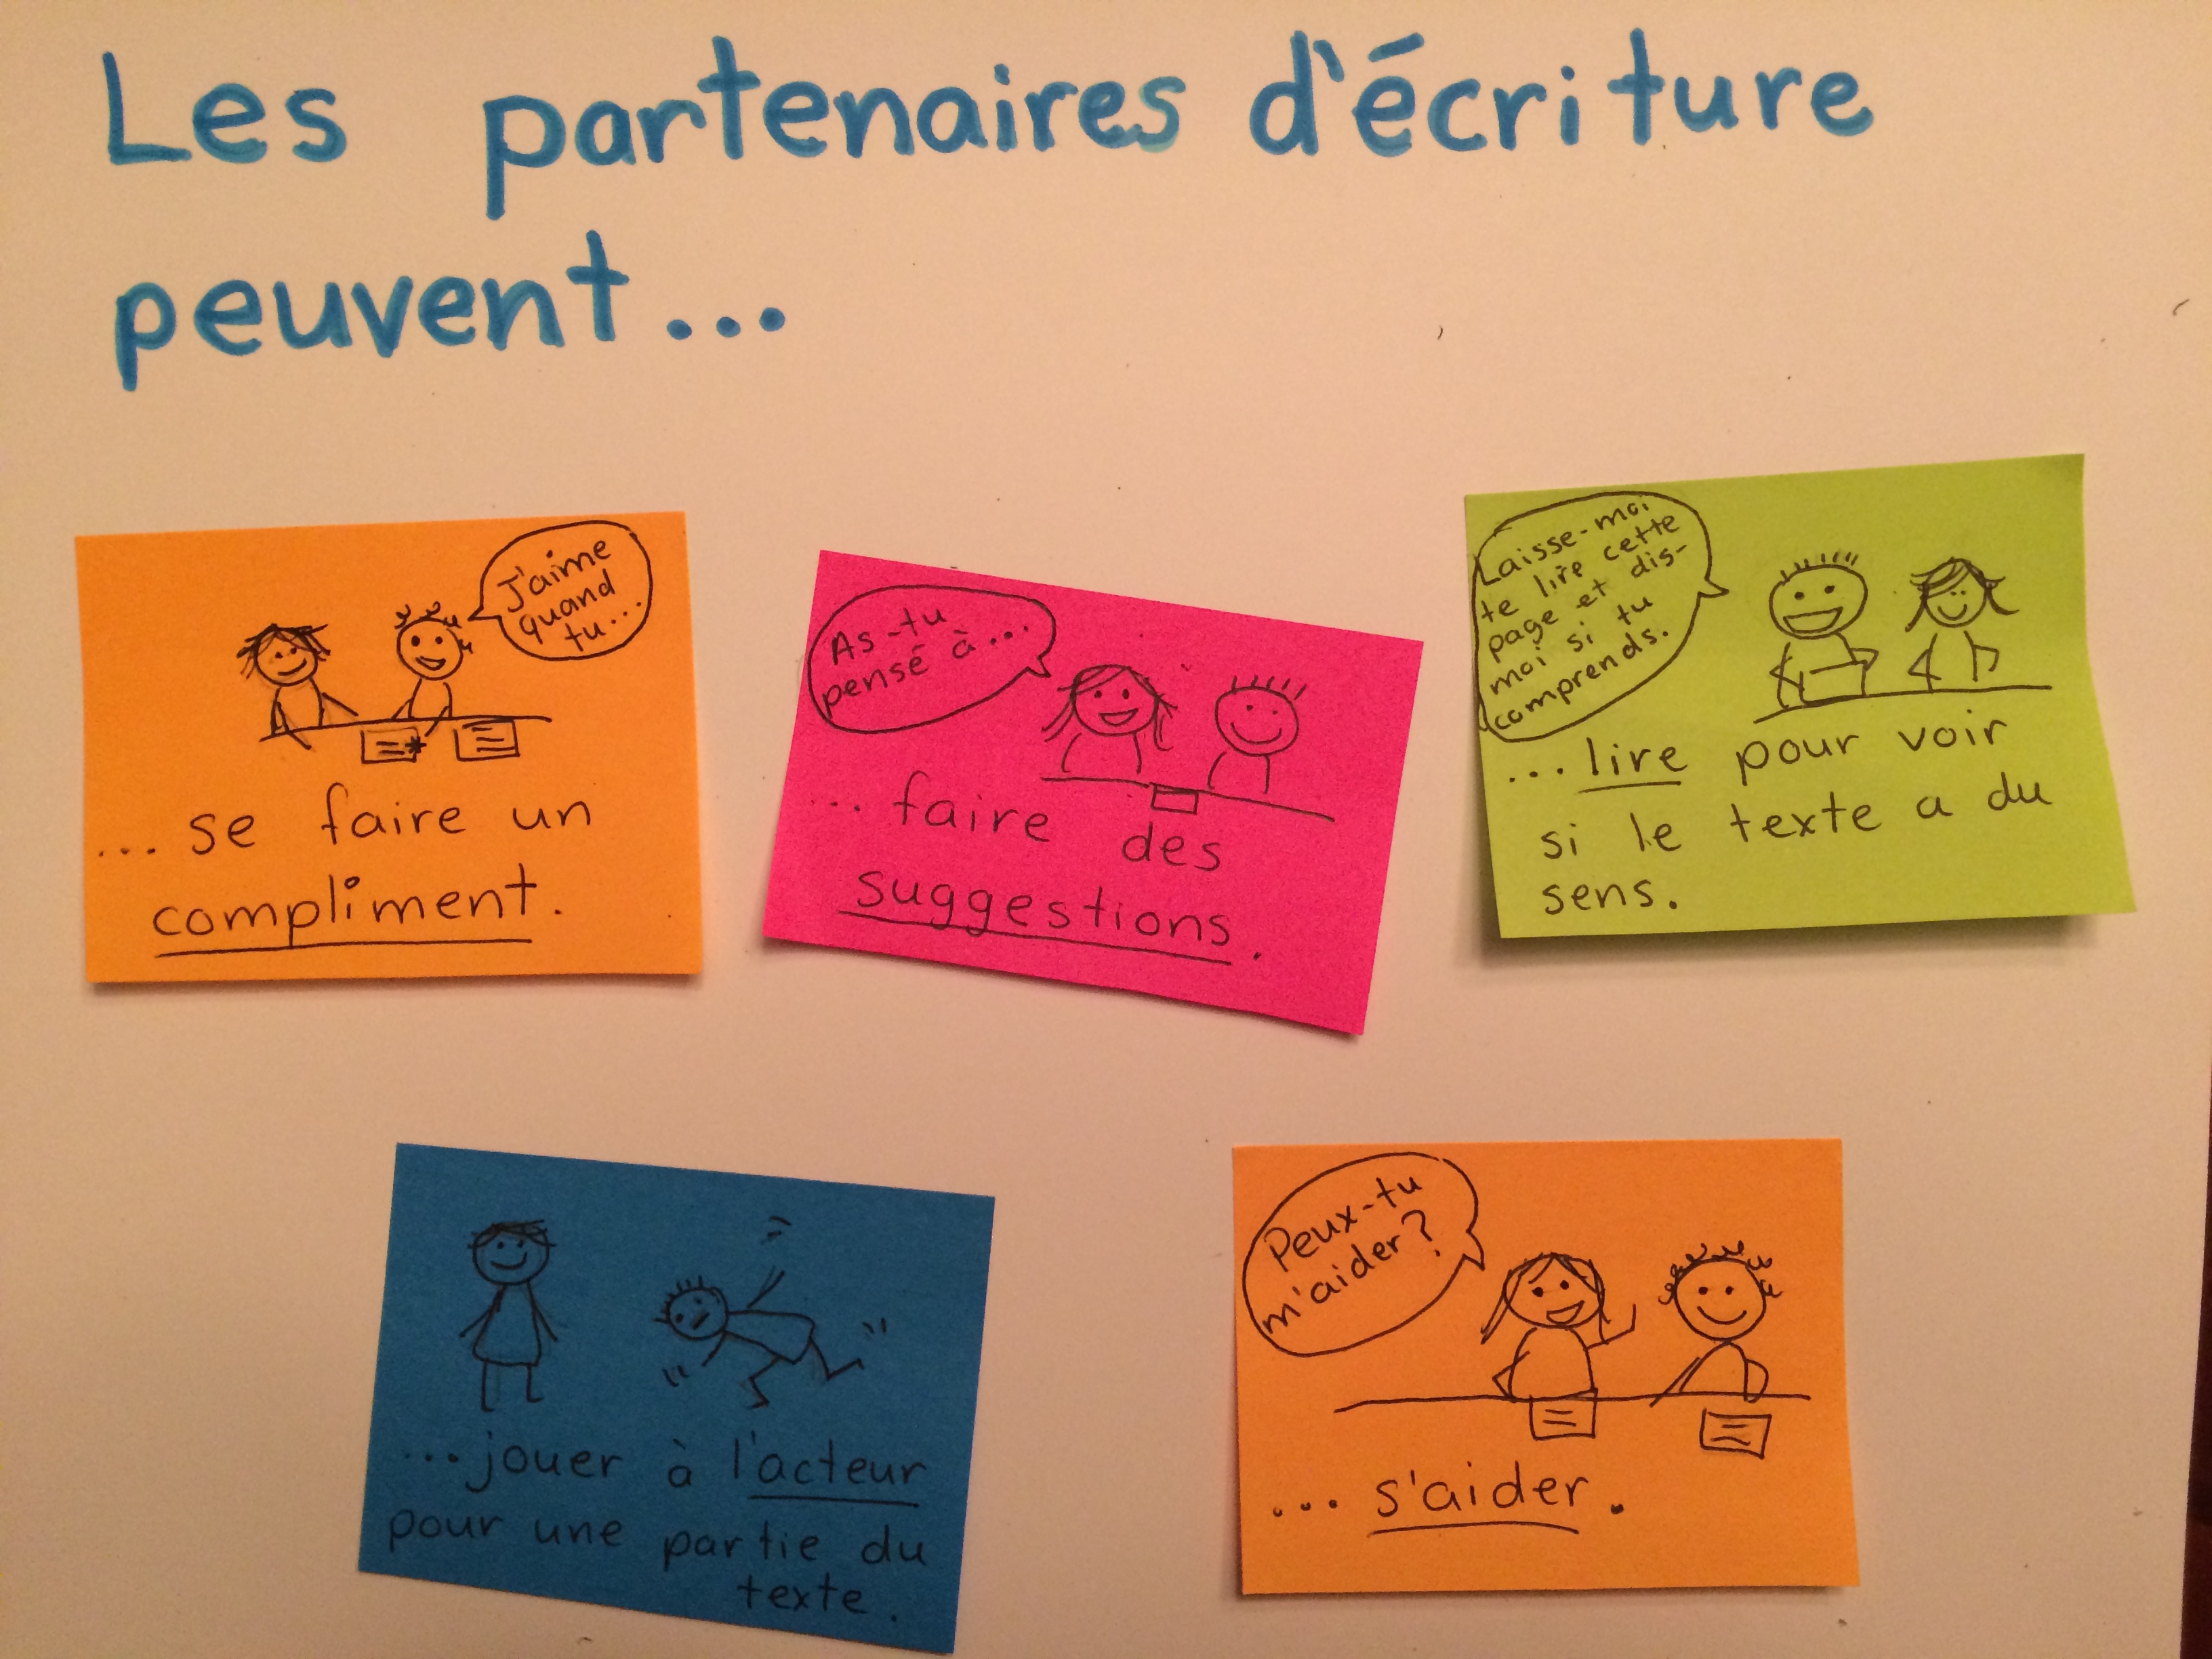 Les partenaires d'écriture
peuvent...
J'aime
quand
tu...
...se faire un
compliment.
As-tu
pensé à...
...faire des
suggestions.
Laisse-moi
te lire cette
page et dis-
moi si tu
comprends.
...lire pour voir
si le texte a du
sens.
...jouer à l'acteur
pour une partie du
texte.
Peux-tu
m'aider?
... s'aider.